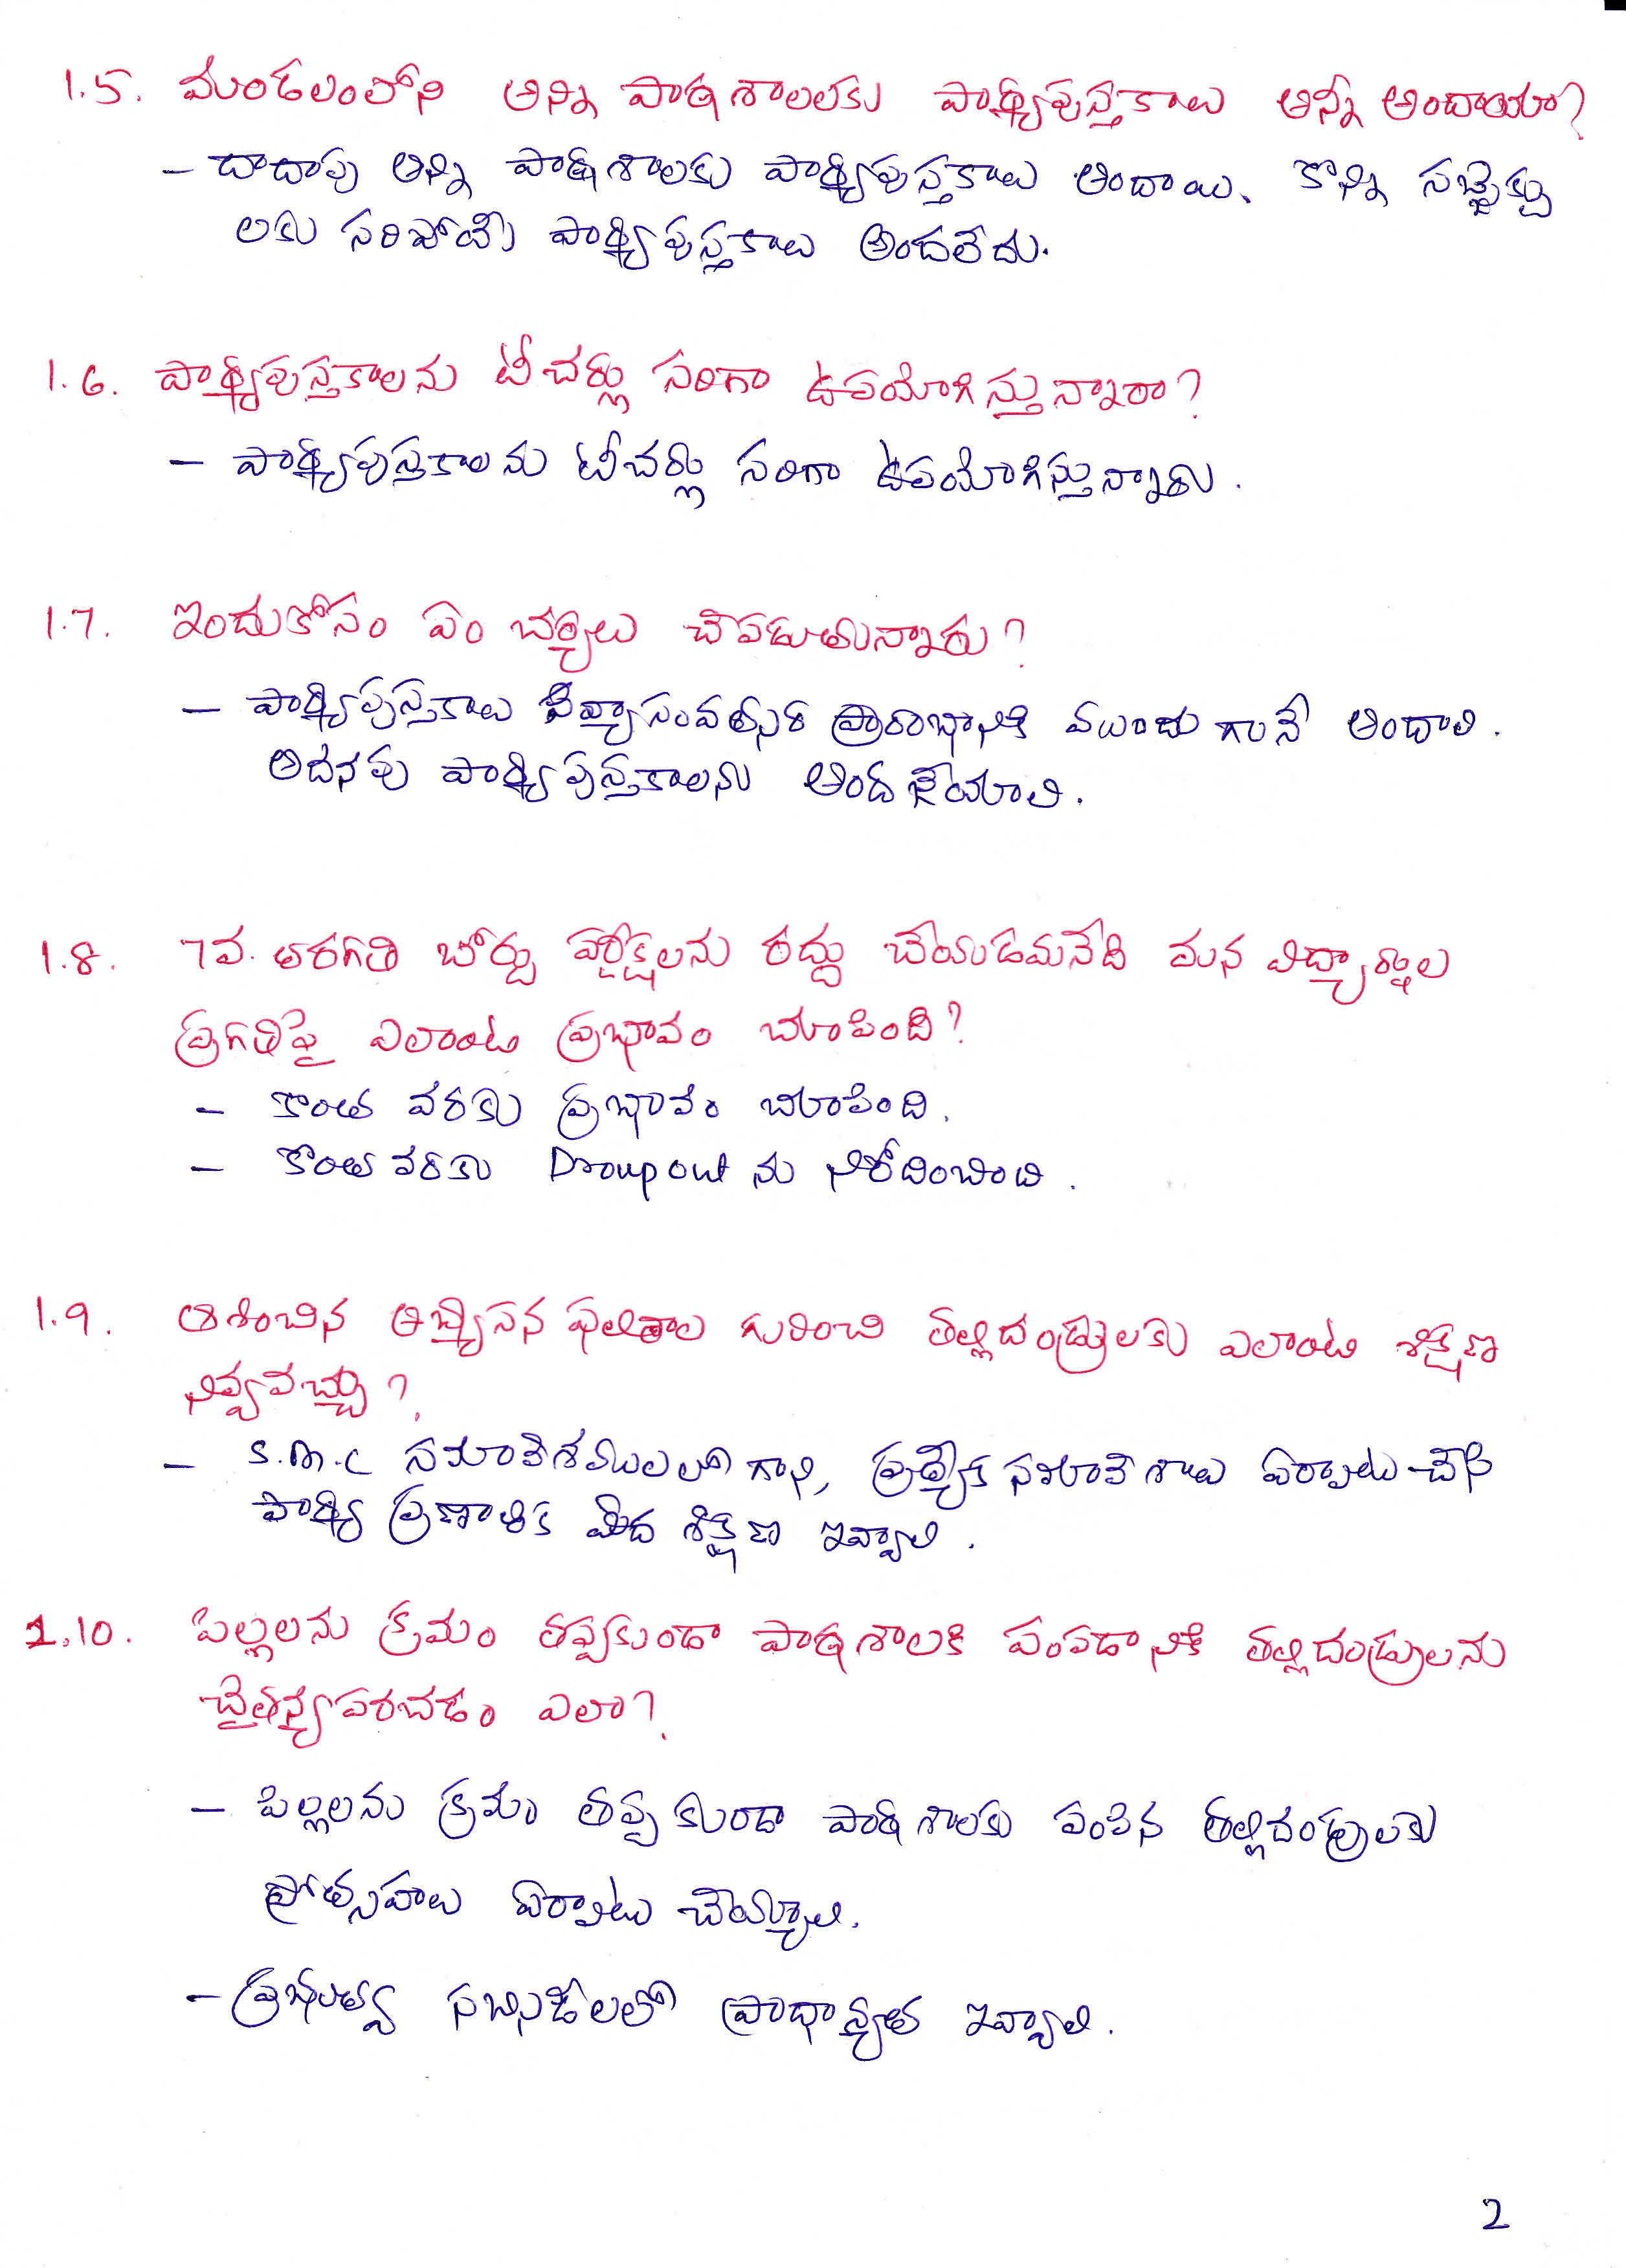 1.5. మండలంలోని అన్ని పాఠశాలలకు పాఠ్యపుస్తకాలు అన్నీ అందాయా?
- దాదాపు అన్ని పాఠశాలకు పాఠ్యపుస్తకాలు అందాయి. కొన్ని సబ్జెక్టు
లకు సరిపోయే పాఠ్యపుస్తకాలు అందలేదు.
1.6. పాఠ్యపుస్తకాలను టీచర్లు సరిగా ఉపయోగిస్తున్నారా?
- పాఠ్యపుస్తకాలను టీచర్లు సరిగా ఉపయోగిస్తున్నారు.
1.7. ఇందుకోసం ఏం చర్యలు చేపడుతున్నారు?
- పాఠ్యపుస్తకాలు విద్యాసంవత్సర ప్రారంభానికి ముందుగానే అందాలి.
అదనపు పాఠ్యపుస్తకాలను అందజేయాలి.
1.8. 7వ. తరగతి బోర్డు పరీక్షలను రద్దు చేయడమనేది మన విద్యార్థుల
ప్రగతిపై ఎలాంటి ప్రభావం చూపింది?
- కొంత వరకు ప్రభావం చూపింది.
- కొంత వరకు Droupout ను నిరోదించింది.
1.9. ఆశించిన అభ్యసన ఫలితాల గురించి తల్లిదండ్రులకు ఎలాంటి శిక్షణ
నివ్వవచ్చు?
- S.M.C సమావేశములలో గాని, ప్రత్యేక సమావేశాలు ఏర్పాటు చేసి
పాఠ్య ప్రణాళిక మీద శిక్షణ ఇవ్వాలి.
1.10. పిల్లలను క్రమం తప్పకుండా పాఠశాలకి పంపడానికి తల్లిదండ్రులను
చైతన్యపరచడం ఎలా?
- పిల్లలను క్రమం తప్పకుండా పాఠశాలకు పంపిన తల్లిదండ్రులకు
ప్రోత్సహాలు ఏర్పాటు చెయ్యాలి.
- ప్రభుత్వ సబ్సిడీలలో ప్రాధాన్యత ఇవ్వాలి.
2